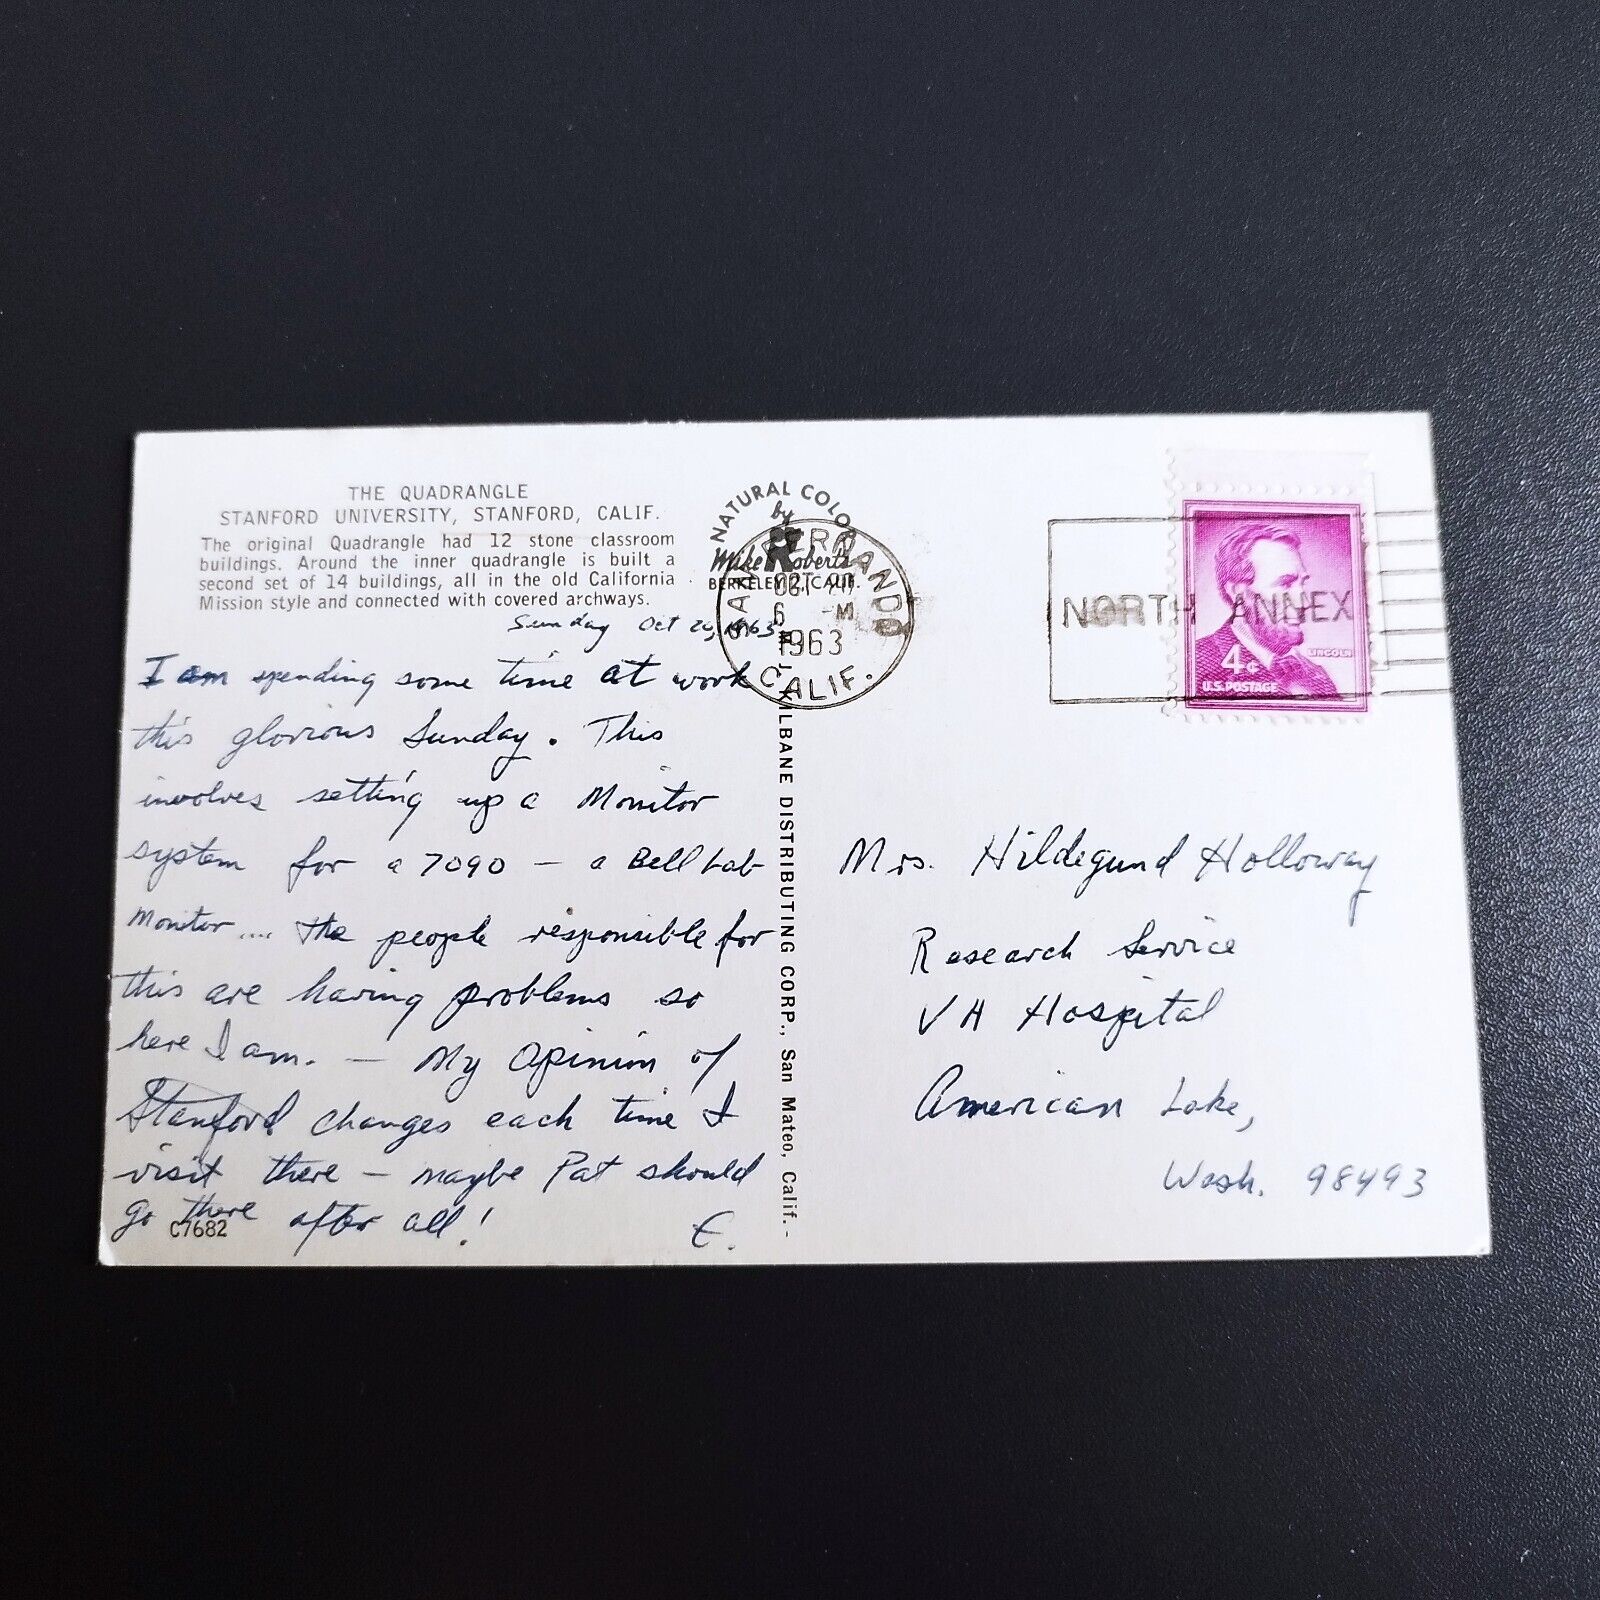 THE QUADRANGLE
STANFORD UNIVERSITY, STANFORD, CALIF.
The original Quadrangle had 12 stone classroom
buildings. Around the inner quadrangle is built a
second set of 14 buildings, all in the old California
Mission style and connected with covered archways.
Sunday Oct 20, 1963
I am spending some time at work
this glorious Sunday. This
involves setting up a Monitor
system for a 7090 — a Bell Lab
Monitor.... the people responsible for
this are having problems so
here I am. — My Opinion of
Stanford changes each time I
visit there — maybe Pat should
go there after all!
E.
C7682
NATURAL COLOR
by
Mike Roberts
BERKELEY 2, CALIF.
SAN FERNANDO
OCT
6 M
1963
CALIF.
W. J. KILBANE DISTRIBUTING CORP., San Mateo, Calif.
NORTH ANNEX
LINCOLN
4¢
U.S. POSTAGE
Mrs. Hildegund Holloway
Research Service
VA Hospital
American Lake,
Wash. 98493